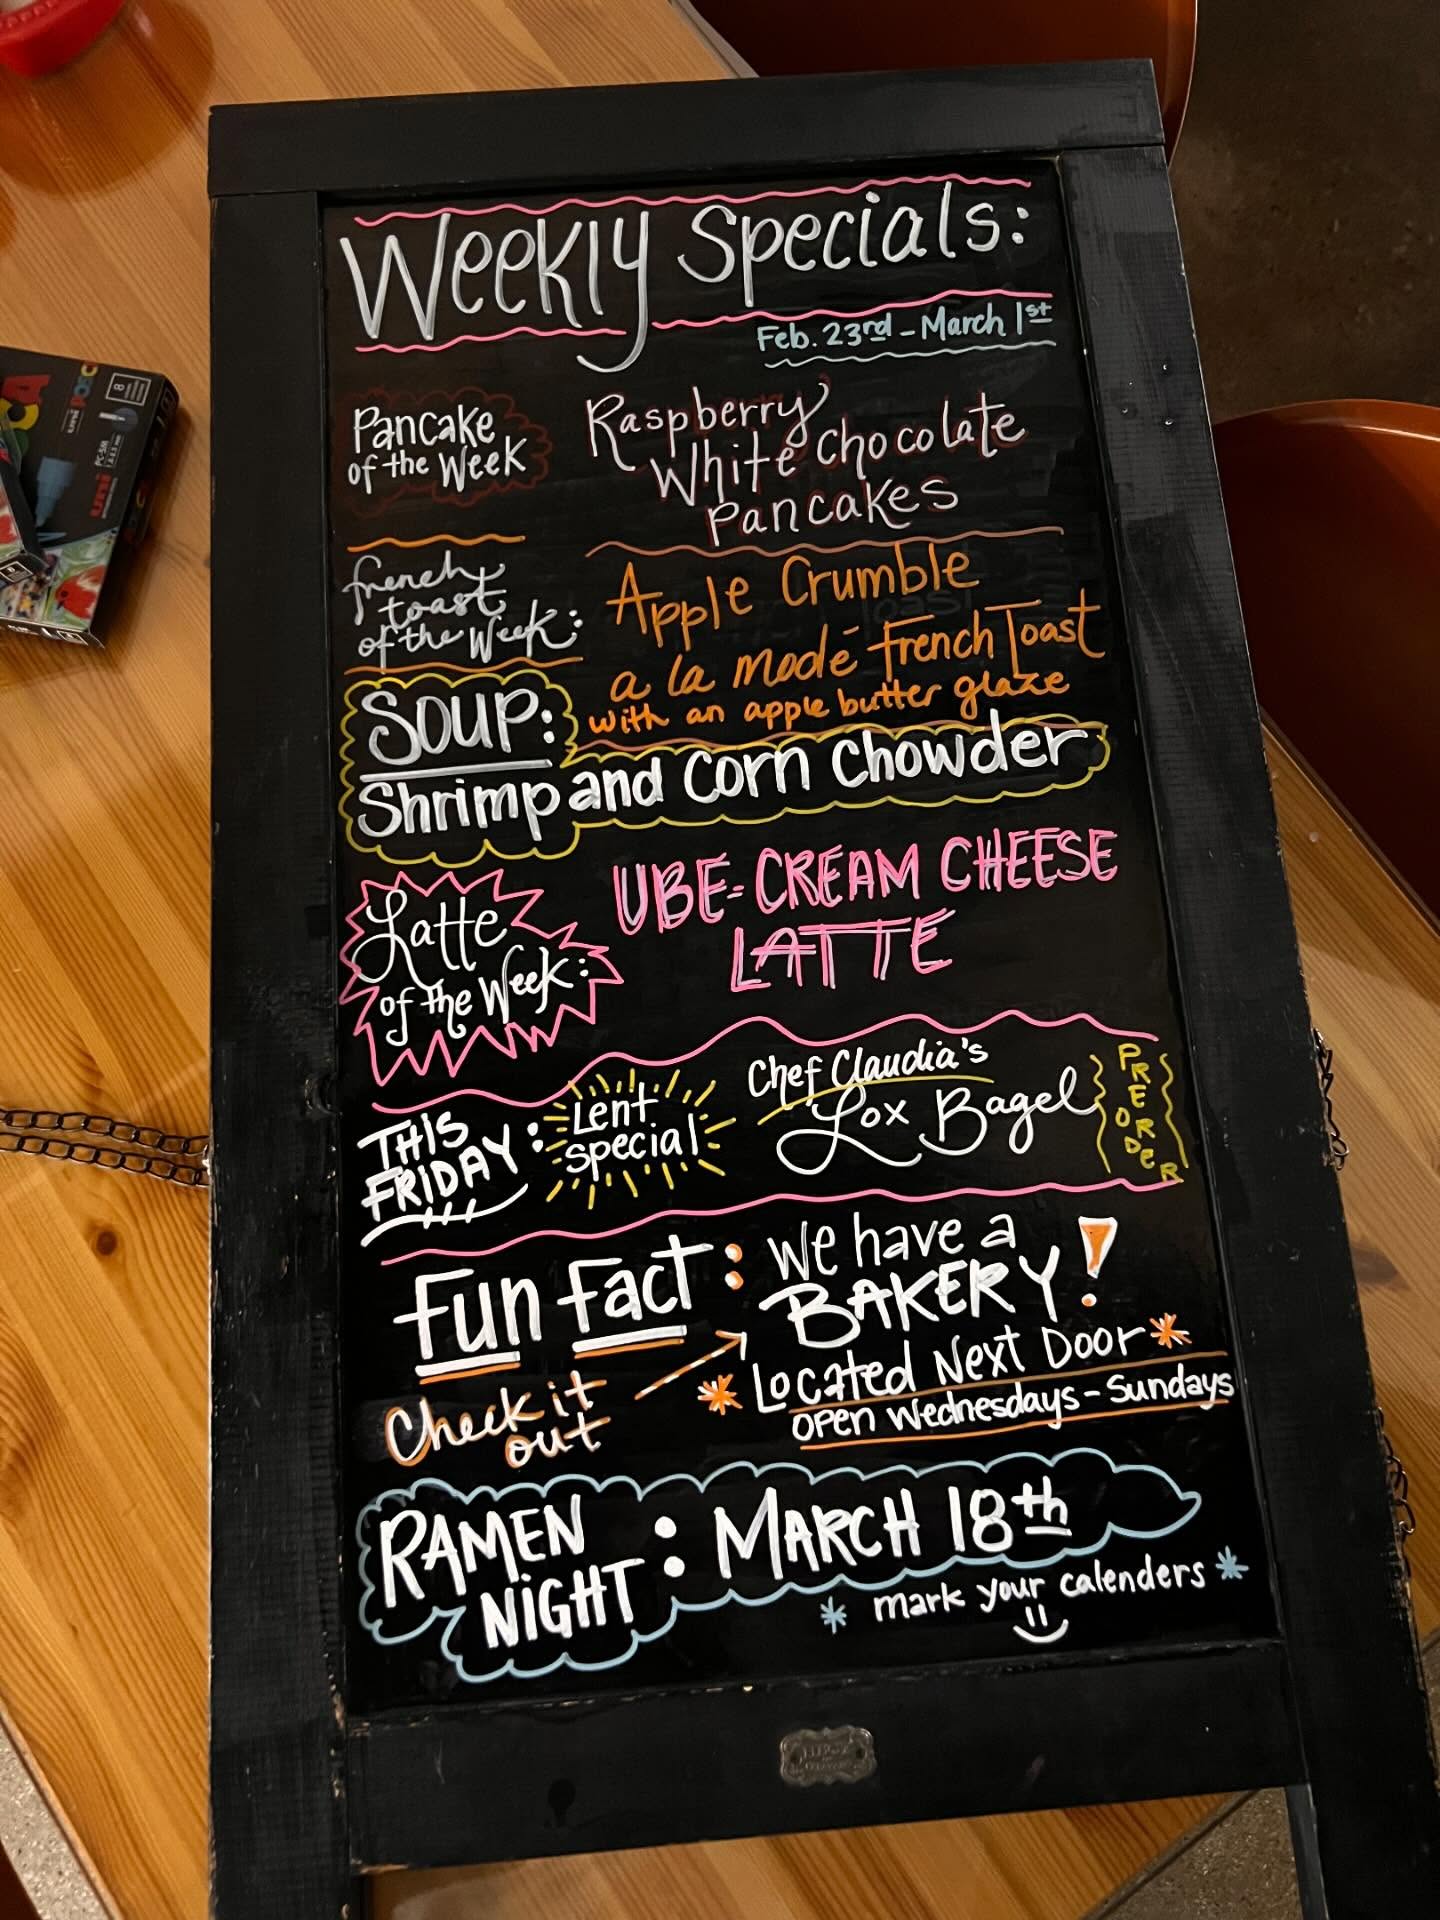 Weekly Specials:
Feb. 23rd - March 1st
Pancake
of the Week
Raspberry
White Chocolate
Pancakes
french
toast
of the Week:
Apple Crumble
a la mode French Toast
with an apple butter glaze
Soup:
Shrimp and Corn Chowder
Latte
of the Week:
UBE-CREAM CHEESE
LATTE
THIS
FRIDAY:
Lent
special
Chef Claudia's
Lox Bagel
PREORDER
Fun Fact:
We have a
BAKERY!
Check it
out
*Located Next Door*
open Wednesdays - Sundays
RAMEN
NIGHT: MARCH 18th
* mark your calenders *
uni
POSCA
PC-5M
8
uni